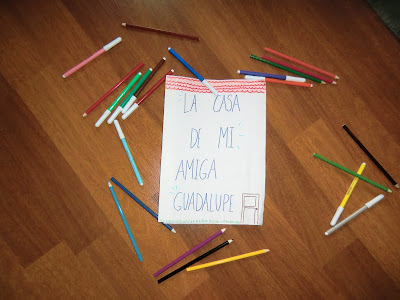 LA CASA
DE MI
AMIGA
GUADALUPE